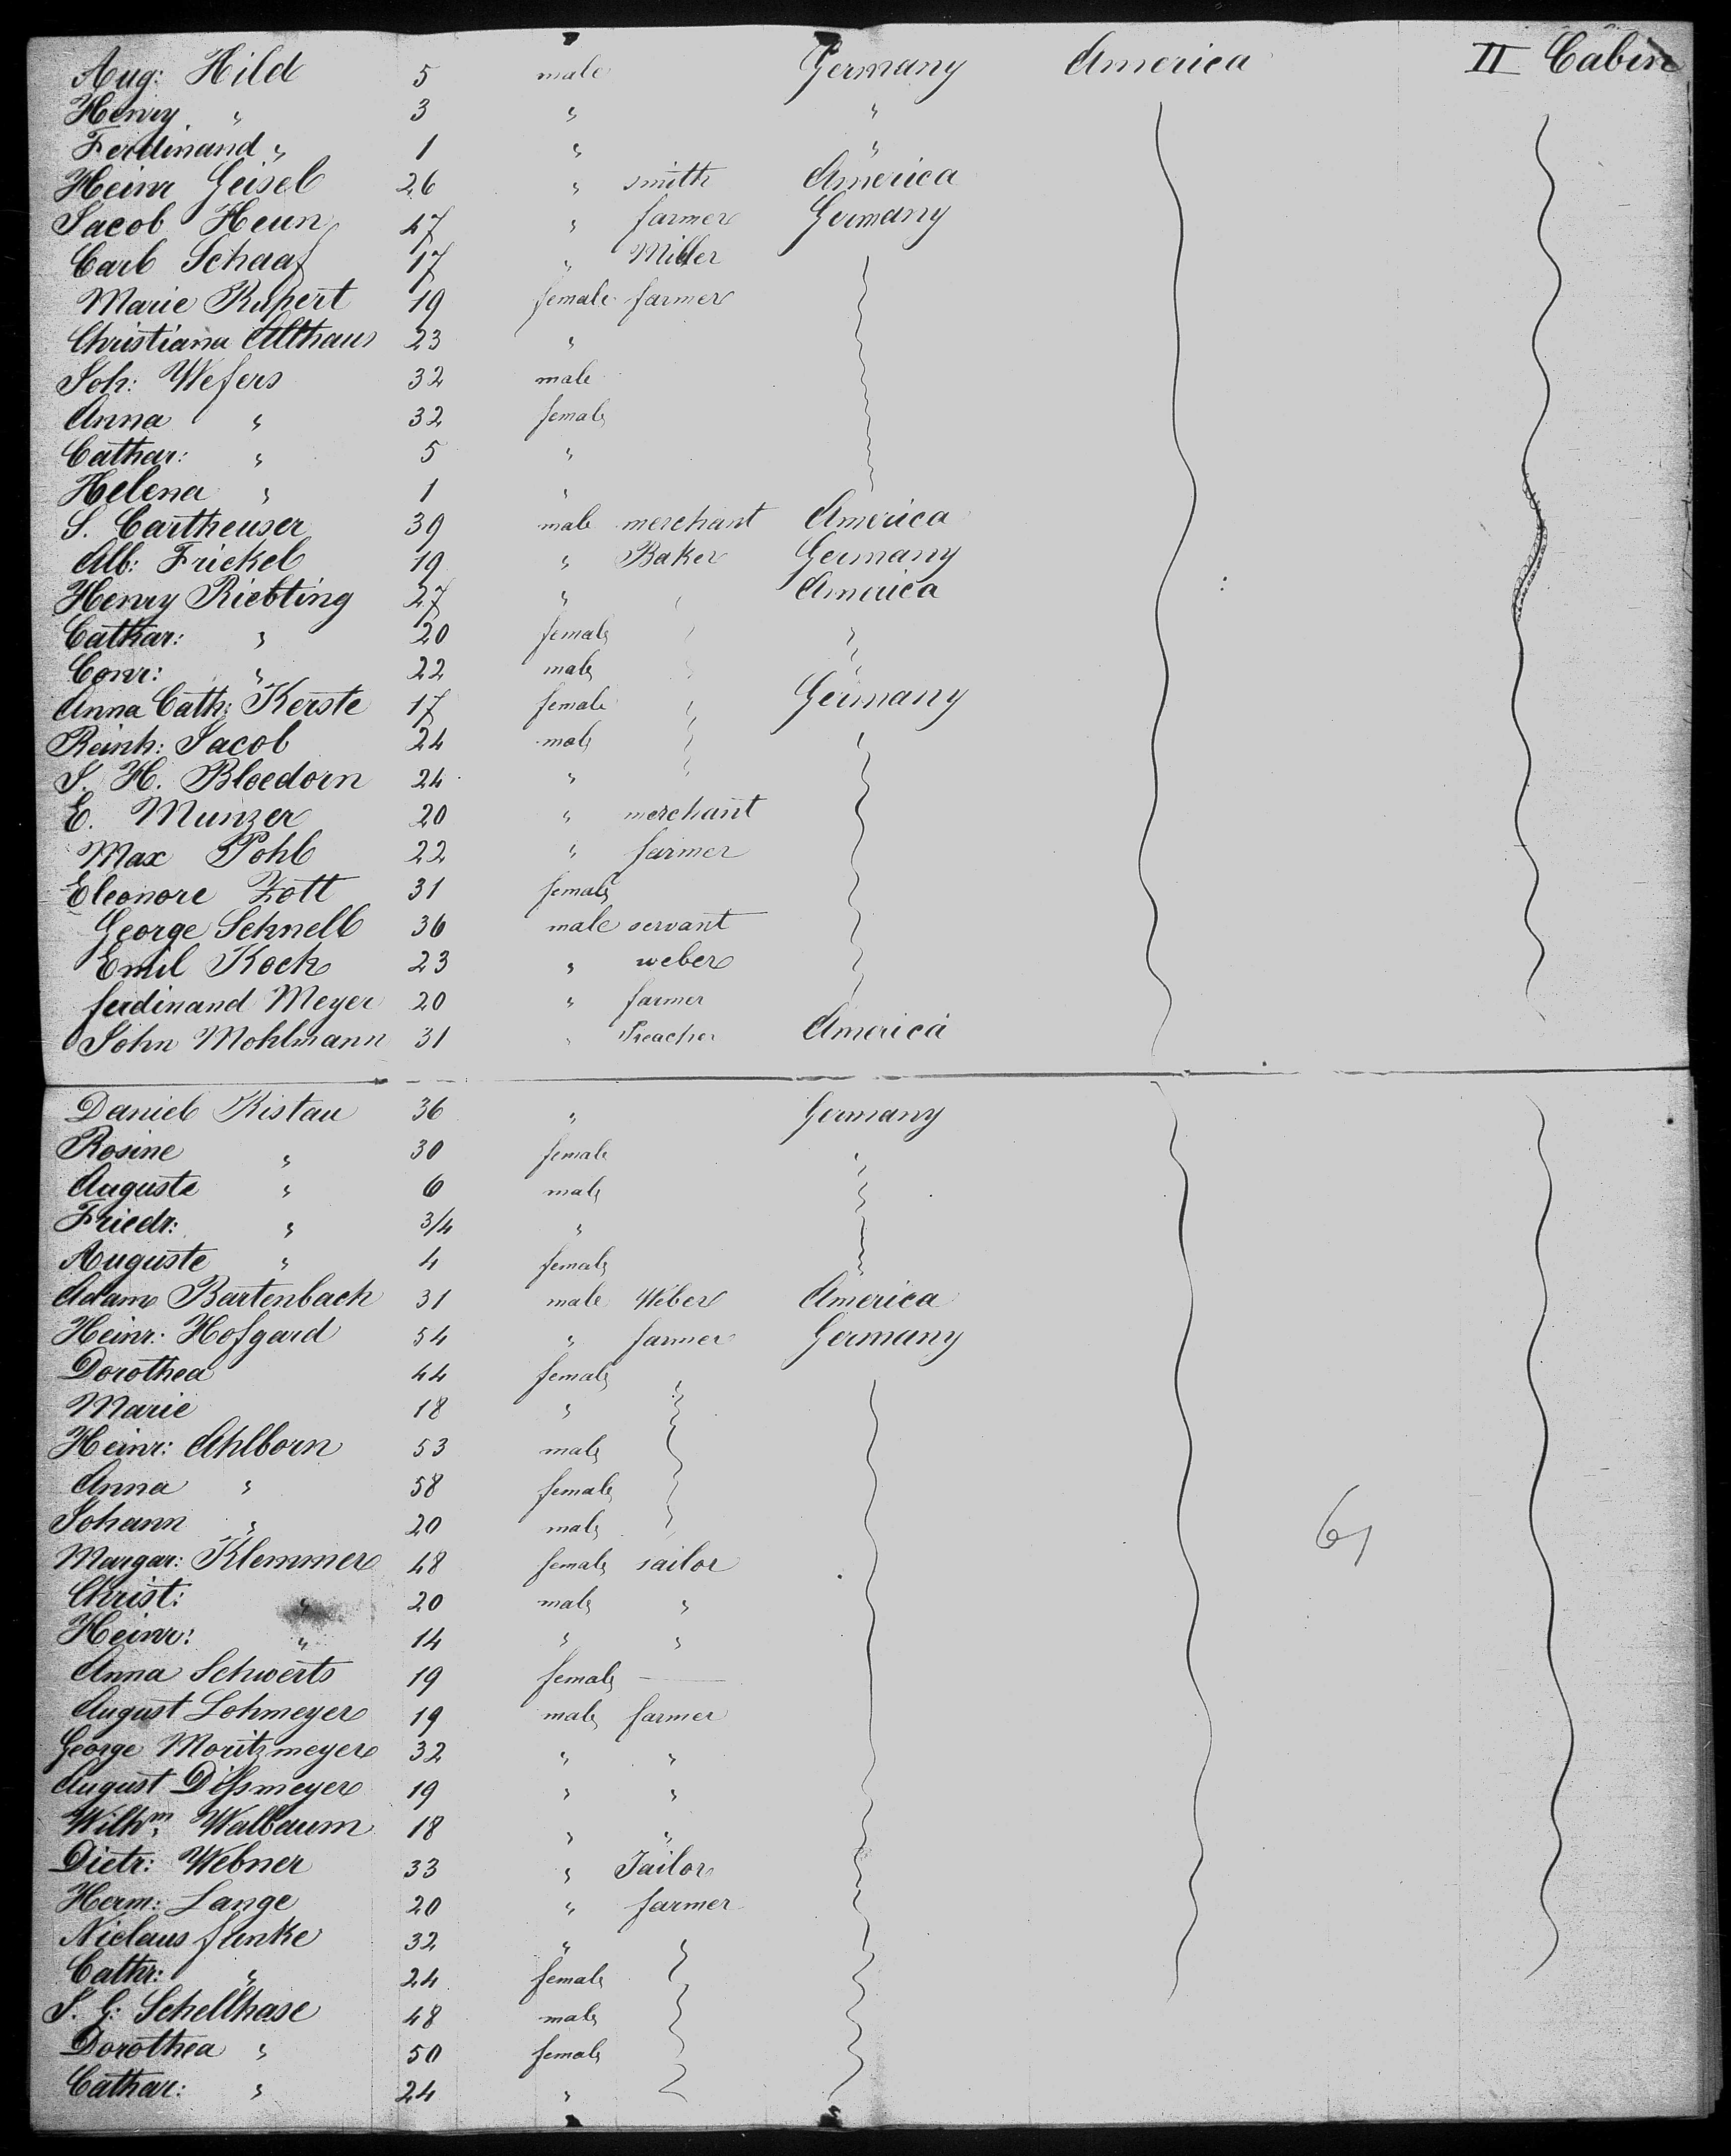 Aug: Hild 5 male Germany America II Cabin
Henry " 3 " "
Ferdinand " 1 " "
Heinr Geisel 26 " smith America
Jacob Heun 47 " farmer Germany
Carl Schaaf 17 " Miller
Marie Rupert 19 female farmer
Christiana Althaus 23 "
Joh: Wefers 32 male
Anna " 32 female
Cathar: " 5 "
Helena " 1 "
J. Cartheuser 39 male merchant America
Alb: Frickel 19 " Baker Germany
Henry Riebling 27 " America
Cathar: " 20 female "
Conr: " 22 male
Anna Cath: Kerste 17 female Germany
Reinh: Jacob 24 male
J. H. Bloedorn 24 "
E. Munzer 20 " merchant
Max Pohl 22 " farmer
Eleonore Zott 31 female
George Schnell 36 male servant
Emil Koch 23 " weber
ferdinand Meyer 20 " farmer
John Mohlmann 31 " Preacher America
Daniel Kistau 36 " Germany
Rosine " 30 female "
Auguste " 6 male
Friedr: " 3/4 "
Auguste " 4 female
Adam Bartenbach 31 male Weber America
Heinr: Hofgard 54 " farmer Germany
Dorothea 44 female
Marie 18 "
Heinr: Ahlborn 53 male
Anna " 58 female
Johann " 20 male
Margar: Klemmer 48 female sailor
Christ: " 20 male "
Heinr: " 14 " "
Anna Schwerts 19 female —
August Lohmeyer 19 male farmer
George Moritzmeyer 32 " "
August Dissmeyer 19 " "
Wilhm: Walbaum 18 " "
Dietr: Webner 33 " Tailor
Herm: Lange 20 " farmer
Niclaus funke 32 "
Cathr: " 24 female
J. G: Schellhase 48 male
Dorothea " 50 female
Cathar: " 24 "